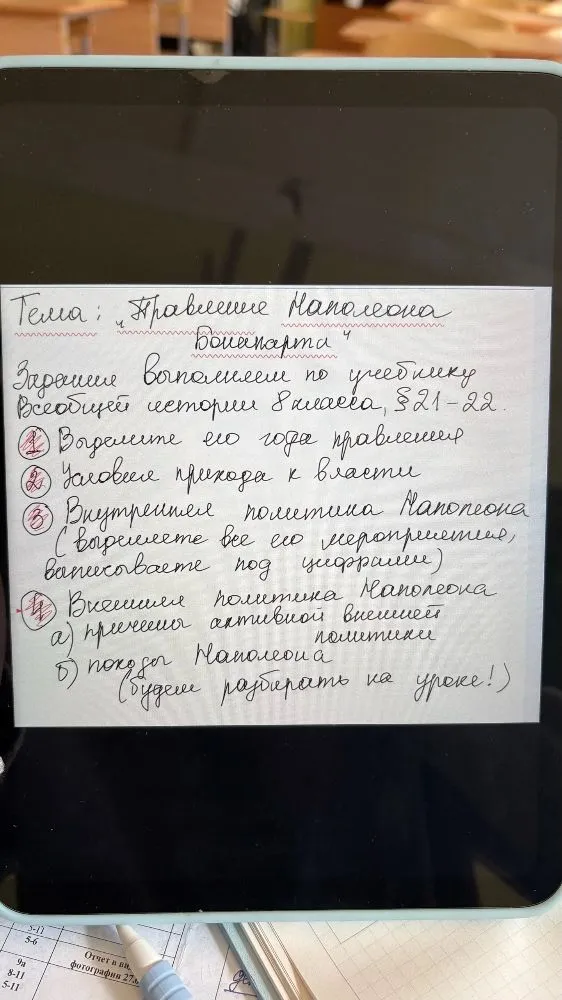 Тема: „Правление Наполеона
Бонапарта"
Задания выполняем по учебнику
Всеобщей истории 8 класса, § 21-22.
1 Выделите его года правления
2 Условия прихода к власти
3 Внутренняя политика Наполеона
(выделяете все его мероприятия,
выписываете под цифрами)
4 Внешняя политика Наполеона
а) причины активной внешней
политики
б) походы Наполеона
(будем разбирать на уроке!)
5-11
5-6
Отчет в ви
фотография 27.
9а
8-11
5-11